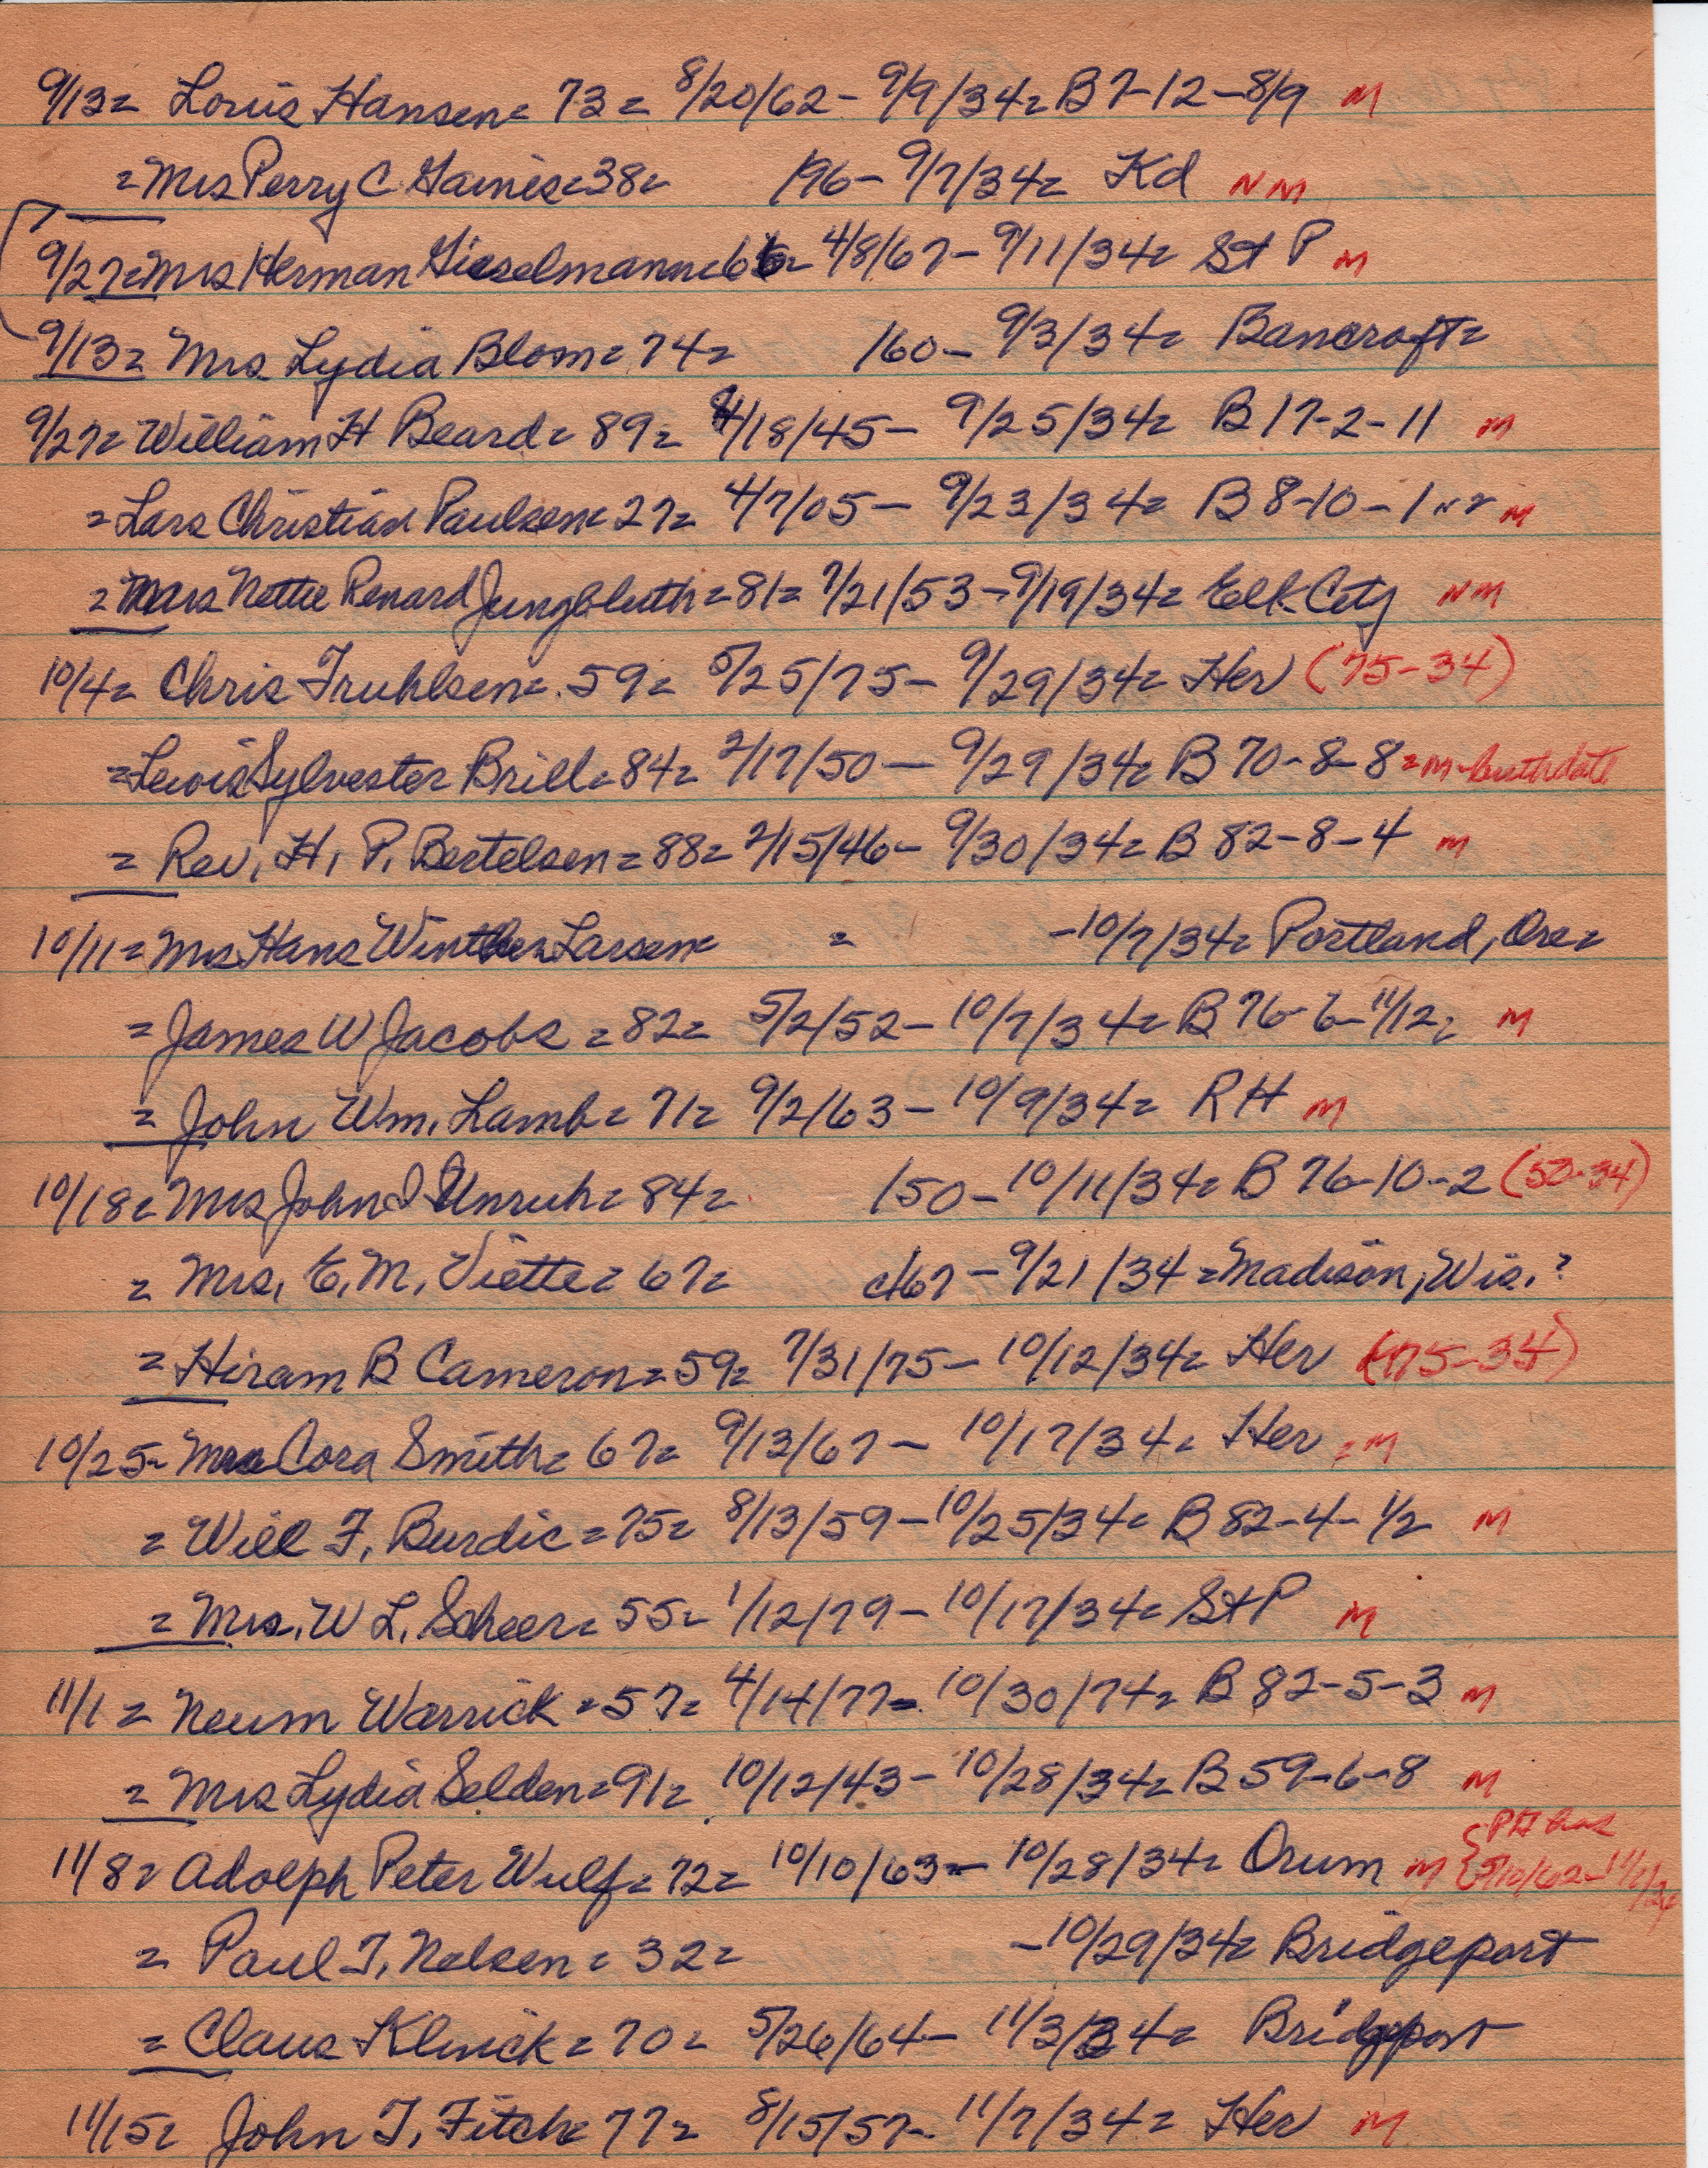 9/13= Louis Hansen= 73= 8/20/62- 9/9/34= B 7-12-8/9 M
=Mrs Perry C Gaines=38= /96- 9/7/34= Kd NM
9/27=Mrs Herman Gieselmann=66= 4/8/67- 9/11/34= St P M
9/13= Mrs Lydia Blom= 74= /60- 9/3/34= Bancroft=
9/27= William H Beard= 89= 4/18/45- 9/25/34= B 17-2-11 M
=Lars Christian Paulsen= 27= 4/7/05- 9/23/34= B 8-10-1 M
=Mrs Nettie Renard Jungbluth=81= 7/21/53-9/19/34= Elk City NM
10/4= Chris Truhlsen= 59= 5/25/75- 9/29/34= Her (75-34)
=Lewis Sylvester Brill=84= 2/17/50- 9/29/34= B 70-8-8=M-birthdate
= Rev. H. P. Bertelsen=88= 2/15/46- 9/30/34= B 82-8-4 M
10/11=Mrs Hans Winther Larsen= = -10/7/34= Portland, Ore=
=James W Jacobs=82= 5/2/52- 10/7/34= B 76-6-11/12= M
= John Wm. Lamb= 71= 9/2/63- 10/9/34= RH M
10/18= Mrs John I Unruh= 84= /50-10/11/34= B 76-10-2 (50-34)
= Mrs. E. M. Viette= 67= c/67-9/21/34=Madison, Wis.?
=Hiram B Cameron=59= 7/31/75- 10/12/34= Her (75-34)
10/25= Mrs Cora Smith= 67= 9/13/67- 10/17/34= Her =M
= Will F. Burdic=75= 8/13/59-10/25/34= B 82-4-1/2 M
=Mrs. W L. Scheer= 55= 1/12/79- 10/17/34= St P M
11/1= Neum Warrick=57= 4/14/77= 10/30/74= B 82-5-3 M
= Mrs Lydia Selden=91= 10/12/43- 10/28/34= B 59-6-8 M
PH has
11/8= Adolph Peter Wulf= 72= 10/10/63- 10/28/34= Orum M {5/10/62-
= Paul T. Nelsen= 32= -10/29/34= Bridgeport
= Claus Klinick= 70= 5/26/64- 11/3/34= Bridgeport
11/15= John T. Fitch= 77= 8/15/57- 11/7/34= Her M